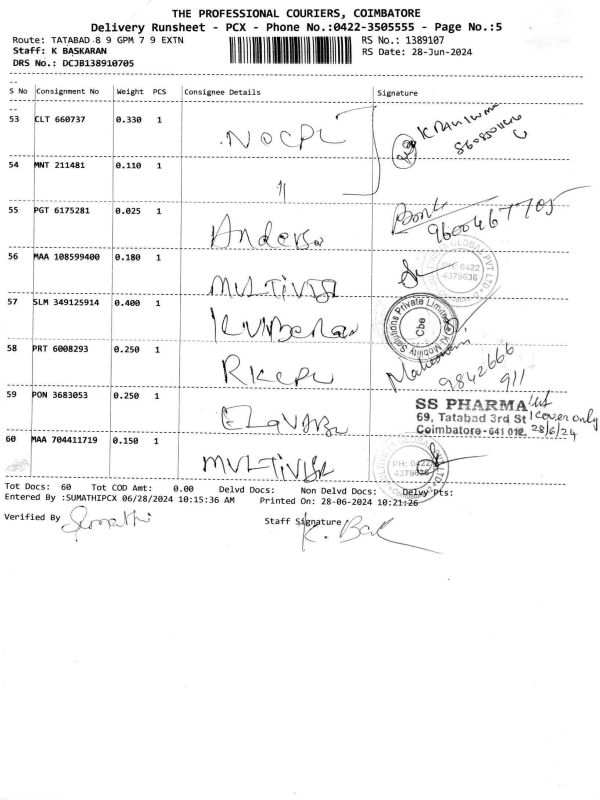 THE PROFESSIONAL COURIERS, COIMBATORE
Delivery Runsheet - PCX - Phone No.:0422-3505555 - Page No.:5
Route: TATABAD 8 9 GPM 7 9 EXTN
RS No.: 1389107
Staff: K BASKARAN
RS Date: 28-Jun-2024
DRS No.: DCJB138910705
S No Consignment No Weight PCS Consignee Details Signature
53 CLT 660737 0.330 1 NOCPL
54 MNT 211481 0.110 1
55 PGT 6175281 0.025 1 9600467705
56 MAA 108599400 0.180 1
GLOBAL PVT LTD
PH: 0422
4379636
57 SLM 349125914 0.400 1
K Mobility Solutions Private Limited
Cbe
58 PRT 6008293 0.250 1
9842666
911
59 PON 3683053 0.250 1
SS PHARMA
69, Tatabad 3rd St 1 cover only
Coimbatore-641 012. 28/6/24
60 MAA 704411719 0.150 1
PH: 0422
4379636
Tot Docs: 60 Tot COD Amt: 0.00 Delvd Docs: Non Delvd Docs: Delvy Pts:
Entered By :SUMATHIPCX 06/28/2024 10:15:36 AM Printed On: 28-06-2024 10:21:26
Verified By Sumathi Staff Signature K. Bas